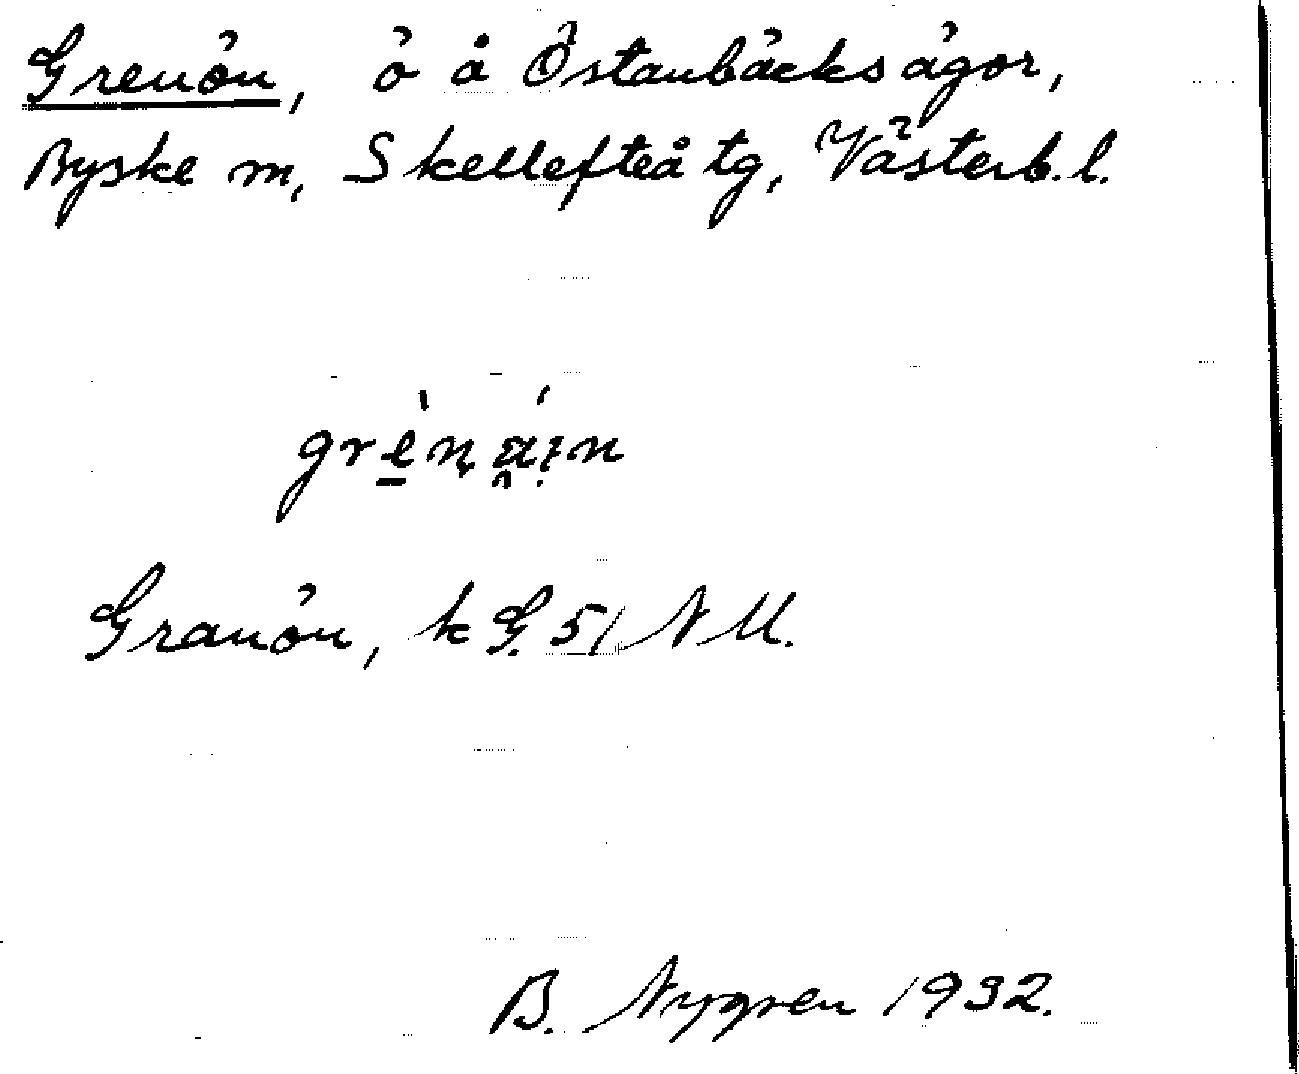 Grenön, ö å Östanbäcks ägor,
Byske sn, Skellefteå tg, Västerb. l.
Granön, k G. 51 NU.
B. Nygren 1932.